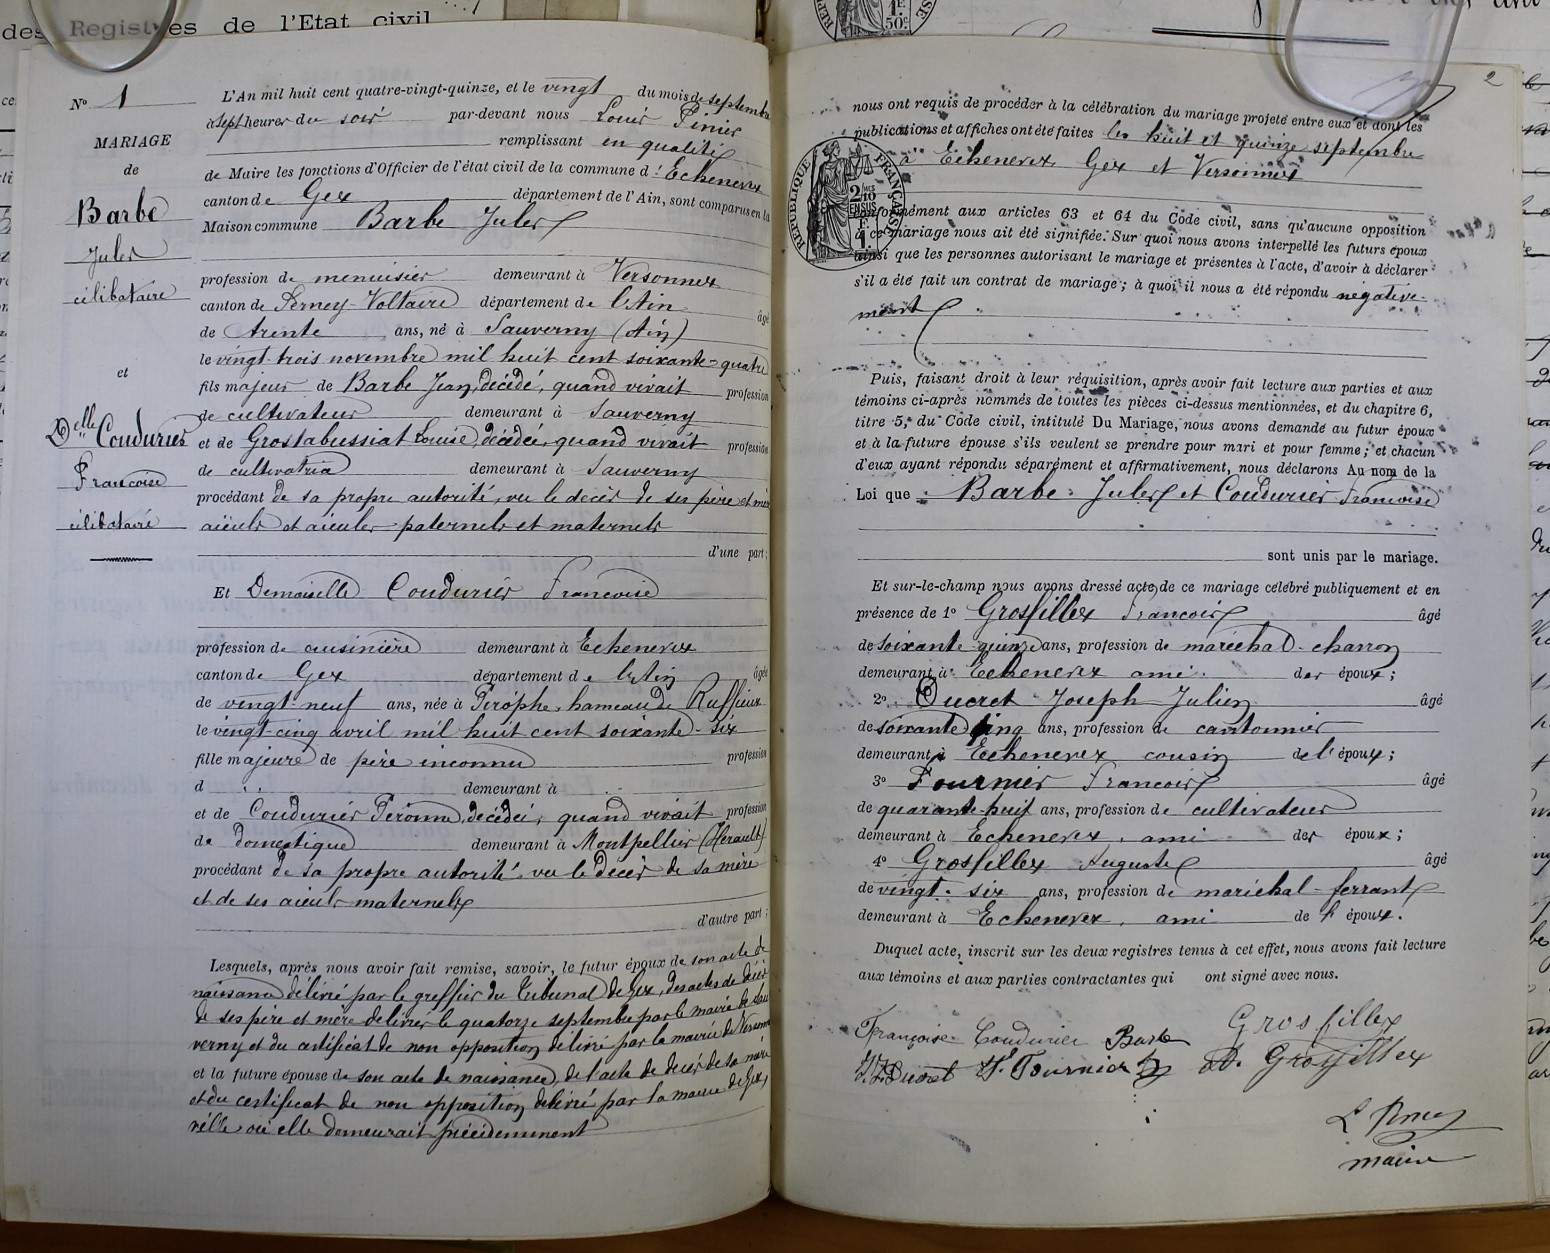 des Registres de l'Etat civil
Nº 1
MARIAGE
de
Barbe
Jules
célibataire
et
Delle Coudurier
Francoise
célibataire
L'An mil huit cent quatre-vingt-quinze, et le vingt du mois de septembre
à sept heures du soir par-devant nous Louis Pinier
remplissant en qualité
de Maire les fonctions d'Officier de l'état civil de la commune d' Echenevex
canton de Gex département de l'Ain, sont comparus en la
Maison commune Barbe Jules
profession de menuisier demeurant à Versonnex
canton de Ferney-Voltaire département de l'Ain âgé
de trente ans, né à Sauverny (Ain)
le vingt-trois novembre mil huit cent soixante-quatre
fils majeur de Barbe Jean, décédé, quand vivait profession
de cultivateur demeurant à Sauverny
et de Grostabussiat Louise, décédée, quand vivait profession
de cultivatrice demeurant à Sauverny
procédant de sa propre autorité, vu le décès de ses père et mère
aïeuls et aïeules paternels et maternels
d'une part;
Et Demoiselle Coudurier Francoise
profession de cuisinière demeurant à Echenevex
canton de Gex département de l'Ain âgée
de vingt-neuf ans, née à hameau de Ruffieux
le vingt-cinq avril mil huit cent soixante-six
fille majeure de père inconnu profession
d demeurant à
et de Coudurier Péronne, décédée, quand vivait profession
de domestique demeurant à Montpellier (Herault)
procédant de sa propre autorité vu le décès de sa mère
et de ses aïeuls maternels
d'autre part;
Lesquels, après nous avoir fait remise, savoir, le futur époux de son acte de
naissance délivré par le greffier du Tribunal de Gex, des actes de décès
de ses père et mère délivrés le quatorze septembre par le mairie de Sau
verny et du certificat de non opposition délivré par la mairie de Versonnex
et la future épouse de son acte de naissance, de l'acte de décès de sa mère
et du certificat de non opposition délivré par la mairie de Gex,
ville où elle demeurait précédemment
2
nous ont requis de procéder à la célébration du mariage projeté entre eux et dont les
publications et affiches ont été faites les huit et quinze septembre
à Echenevex Gex et Versonnex
RÉPUBLIQUE FRANÇAISE
conformément aux articles 63 et 64 du Code civil, sans qu'aucune opposition
à ce mariage nous ait été signifiée. Sur quoi nous avons interpellé les futurs époux
ainsi que les personnes autorisant le mariage et présentes à l'acte, d'avoir à déclarer
s'il a été fait un contrat de mariage; à quoi il nous a été répondu négative-
ment
Puis, faisant droit à leur réquisition, après avoir fait lecture aux parties et aux
témoins ci-après nommés de toutes les pièces ci-dessus mentionnées, et du chapitre 6,
titre 5, du Code civil, intitulé Du Mariage, nous avons demandé au futur époux
et à la future épouse s'ils veulent se prendre pour mari et pour femme; et chacun
d'eux ayant répondu séparément et affirmativement, nous déclarons Au nom de la
Loi que Barbe Jules et Coudurier Francoise
sont unis par le mariage.
Et sur-le-champ nous avons dressé acte de ce mariage célébré publiquement et en
présence de 1º Grosfillex Francois âgé
de soixante-quinze ans, profession de maréchal-charron
demeurant à Echenevex ami des époux;
2º Ducret Joseph Julien âgé
de soixante cinq ans, profession de cantonnier
demeurant à Echenevex cousin de l'époux;
3º Fournier Francois âgé
de quarante-huit ans, profession de cultivateur
demeurant à Echenevex, ami des époux;
4º Grosfillex Auguste âgé
de vingt-six ans, profession de maréchal-ferrant
demeurant à Echenevex, ami de l'époux.
Duquel acte, inscrit sur les deux registres tenus à cet effet, nous avons fait lecture
aux témoins et aux parties contractantes qui ont signé avec nous.
Françoise Coudurier Barbe Grosfillex
J. J. Ducret Fs Fournier A. Grosfillex
maire